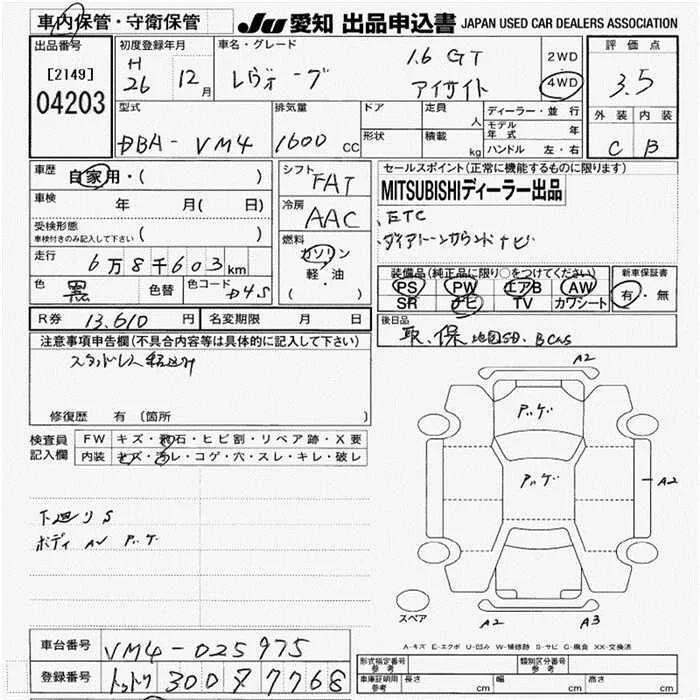 車内保管・守衛保管
JU 愛知 出品申込書 JAPAN USED CAR DEALERS ASSOCIATION
出品番号
[2149]
04203
初度登録年月
H
26 12月
車名・グレード
レヴォーグ
1.6 GT
アイサイト
2WD
4WD
評価点
3.5
外装 内装
C B
型式
DBA-VM4
排気量
1600 CC
ドア
形状
定員
人
積載
kg
ディーラー・並行
モデル年式 年
ハンドル 左・右
車歴
自家用・( )
車検
年 月( 日)
受検形態
車検付きのみ記入して下さい ( )
走行
6万8千603km
色
黒
色替
色コード
D4S
シフト
FAT
冷房
AAC
燃料
ガソリン
軽・油
( )
セールスポイント(正常に機能するものに限ります)
MITSUBISHIディーラー出品
ETC
ダイアトーンサウンドナビ
装備品(純正品に限り○をつけてください)
PS PW エアB AW
SR ナビ TV カワシート
新車保証書
有・無
R券 13,610 円
名変期限 月 日
後日品
取、保 地図SD、BCAS
注意事項申告欄(不具合内容等は具体的に記入して下さい)
修復歴 有 〔箇所 〕
検査員
記入欄
FW キズ・飛石・ヒビ割・リペア跡・X要
内装 キズ・汚レ・コゲ・穴・スレ・キレ・破レ
下廻りS
ボディ AU P.ケ
A2
P.ケ
P.ケ
A2
A2
A3
スペア
A-キズ E-エクボ U-凹み W-補修跡 S-サビ C-腐食 XX-交換済
車台番号
VM4-025975
登録番号
300 7768
形式指定番号
参考
類別区分番号
参考
車庫証明用
参考
長さ cm 幅 cm 高さ cm